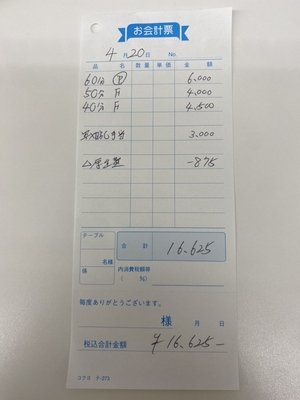 お会計票
4月20日 No.
品名 数量 単価 金額
60分 Ⓟ 6,000
50分 F 4,000
40分 F 4,500
3,000
△厚生費 -875
テーブル
名様
係
合計 16,625
内消費税額等
( %)
毎度ありがとうございます。
様 月 日
税込合計金額 ¥16,625-
コクヨ テ-273